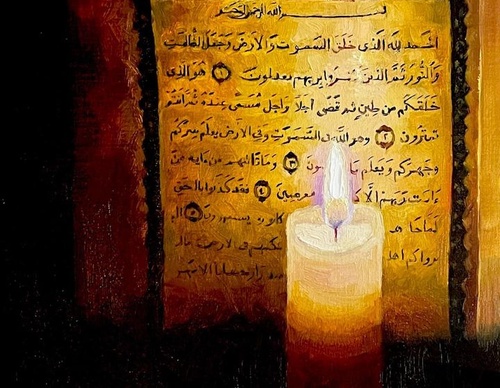 بسم الله الرحمن الرحيم
الحمد لله الذى خلق السموت والارض وجعل الظلمت
والنور ثم الذين كفروا بربهم يعدلون ١ هو الذى
خلقكم من طين ثم قضى اجلا واجل مسمى عنده ثم انتم
تمترون ٢ وهو الله فى السموت وفى الارض يعلم سركم
وجهركم ويعلم ما ٣ وما تاتيهم من ءاية من
ءايت ربهم الا معرضين ٤ فقد كذبوا بالحق
لما جاءهم كانوا به يستهزءون ٥ الم
يروا كم فى الارض ما لم
وجعلنا الانهر